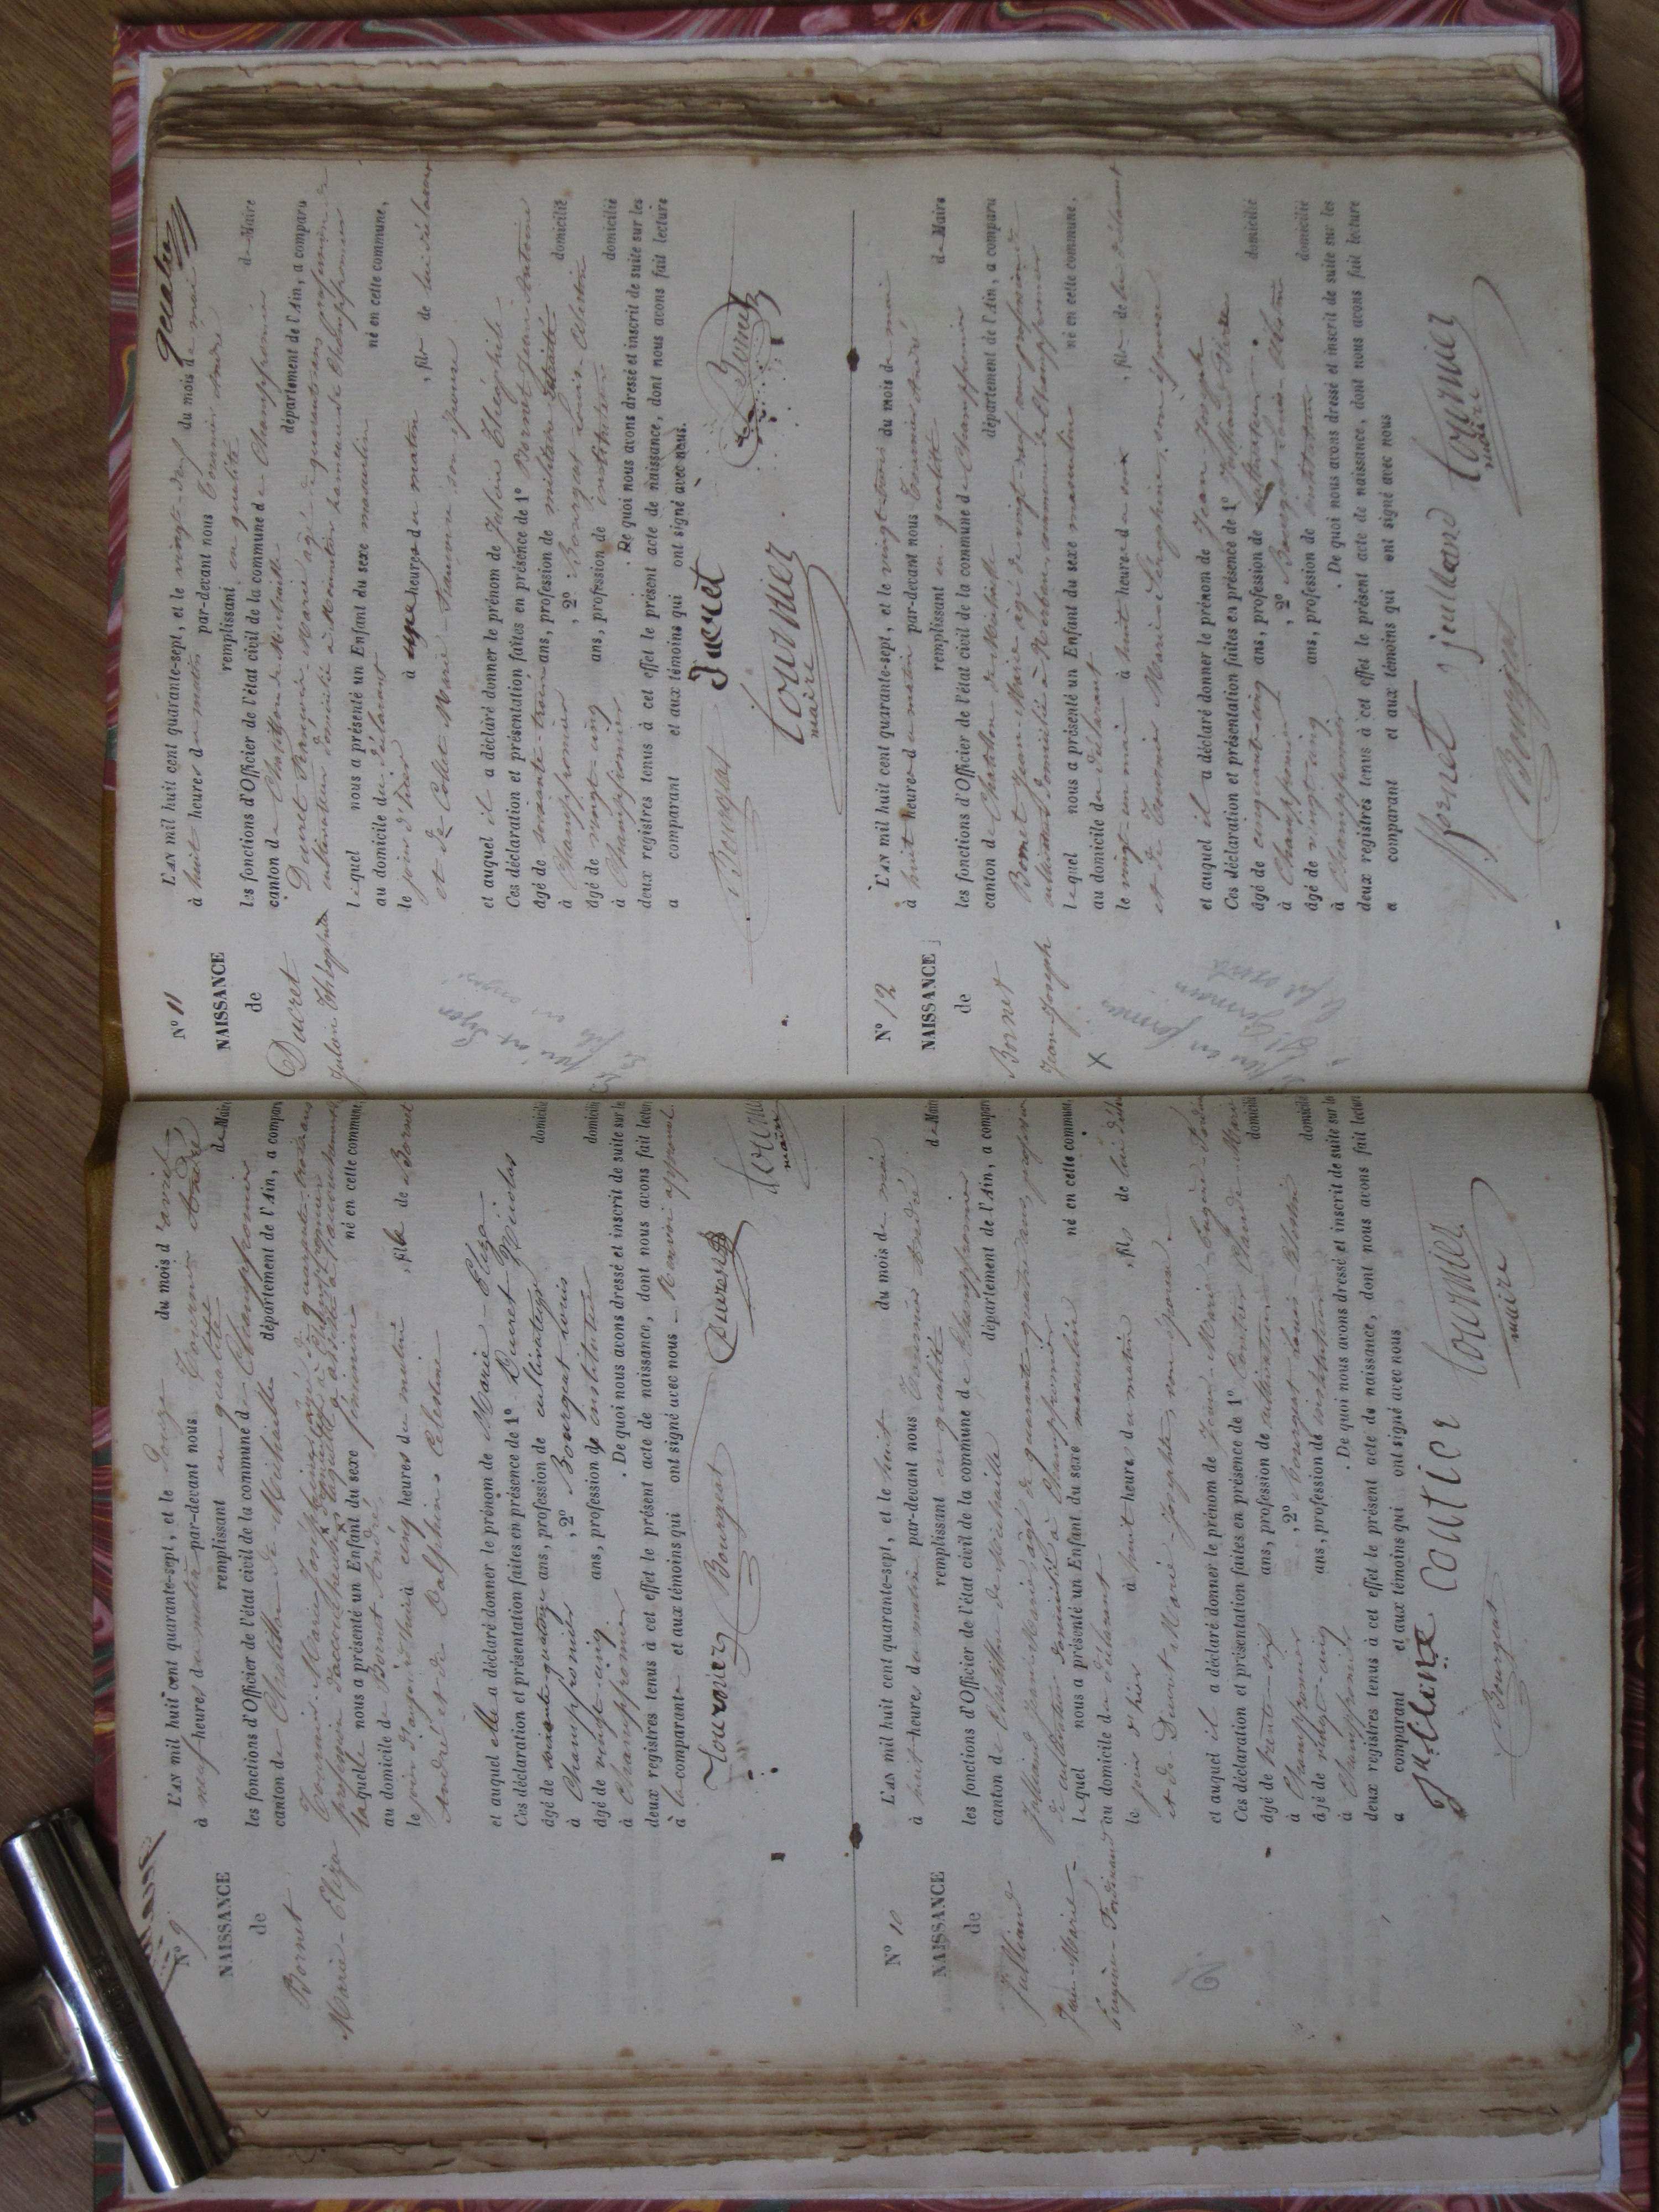 N° 9
NAISSANCE
de
Bornet
Marie-Eliza
L'AN mil huit cent quarante-sept, et le douze du mois d'avril
à neuf heures du matin par-devant nous Tournier André
remplissant en qualité de Maire
les fonctions d'Officier de l'état civil de la commune de Champfromier
canton de Chatillon de Michaille département de l'Ain, a comparu
Tournier Marie Josephine âgée de quarante-trois ans
profession d'accoucheuse domiciliée à Champfromier
laquelle nous a présenté un Enfant du sexe féminin né en cette commune,
au domicile de Bornet André
le jour d'aujourd'hui à cinq heures du matin, fille de Bornet
André et de Dalphine Celestine
et auquel elle a déclaré donner le prénom de Marie-Eliza
Ces déclaration et présentation faites en présence de 1° Ducret Nicolas
âgé de soixante quatre ans, profession de cultivateur domicilié
à Champfromier, 2° Bourgeat Louis
âgé de vingt-cinq ans, profession de instituteur domicilié
à Champfromier. De quoi nous avons dressé et inscrit de suite sur les
deux registres tenus à cet effet le présent acte de naissance, dont nous avons fait lecture
à la comparante et aux témoins qui ont signé avec nous
Tournier Bourgeat Ducret Tournier
maire
N° 10
NAISSANCE
de
Julliand
Jean-Marie-
Eugène-Ferdinand
L'AN mil huit cent quarante-sept, et le huit du mois de mai
à huit heures du matin par-devant nous Tournier André
remplissant en qualité de Maire
les fonctions d'Officier de l'état civil de la commune de Champfromier
canton de Chatillon de Michaille département de l'Ain, a comparu
Julliand Jean-Marie âgé de quarante-quatre ans, profession
de cultivateur domicilié à Champfromier
lequel nous a présenté un Enfant du sexe masculin né en cette commune,
au domicile du déclarant
le jour d'hier à huit heures du matin, fils de lui déclarant
et de Ducret Marie-Josephte, son épouse
et auquel il a déclaré donner le prénom de Jean-Marie-Eugène-Ferdinand
Ces déclaration et présentation faites en présence de 1° Coutier Claude-Marie
âgé de trente-six ans, profession de cultivateur domicilié
à Champfromier, 2° Bourgeat Louis-Célestin
âgé de vingt-cinq ans, profession de instituteur domicilié
à Champfromier. De quoi nous avons dressé et inscrit de suite sur les
deux registres tenus à cet effet le présent acte de naissance, dont nous avons fait lecture
a comparant et aux témoins qui ont signé avec nous
Coutier Tournier
Bourgeat maire
quatre
N° 11
NAISSANCE
de
Ducret
Julien Théophile
L'AN mil huit cent quarante-sept, et le vingt-deux du mois de mai
à huit heures du matin par-devant nous Tournier André
remplissant en qualité de Maire
les fonctions d'Officier de l'état civil de la commune de Champfromier
canton de Chatillon de Michaille département de l'Ain, a comparu
Ducret François Marie âgé de quarante ans, profession de
cultivateur domicilié à Monnetier hameau de Champfromier
lequel nous a présenté un Enfant du sexe masculin né en cette commune,
au domicile du déclarant
le jour d'hier à onze heures du matin, fils de lui déclarant
et de Colet Marie-Jeanne son épouse
et auquel il a déclaré donner le prénom de Julien Théophile
Ces déclaration et présentation faites en présence de 1° Bornet Jean-Antoine
âgé de soixante-treize ans, profession de militaire retraité domicilié
à Champfromier, 2° Bourgeat Louis-Célestin
âgé de vingt-cinq ans, profession de instituteur domicilié
à Champfromier. De quoi nous avons dressé et inscrit de suite sur les
deux registres tenus à cet effet le présent acte de naissance, dont nous avons fait lecture
a comparant et aux témoins qui ont signé avec nous.
Bourgeat Ducret Bornet
Tournier
maire
N° 12
NAISSANCE
de
Bornet
Jean Joseph
X
L'AN mil huit cent quarante-sept, et le vingt-trois du mois de mai
à huit heures du matin par-devant nous Tournier André
remplissant en qualité de Maire
les fonctions d'Officier de l'état civil de la commune de Champfromier
canton de Chatillon de Michaille département de l'Ain, a comparu
Bornet Jean-Marie âgé de vingt-neuf ans, profession de
cultivateur domicilié à commune de Champfromier
lequel nous a présenté un Enfant du sexe masculin né en cette commune,
au domicile du déclarant
le vingt-un mai à huit heures du soir, fils de lui déclarant
et de Tournier Marie Séraphine, son épouse
et auquel il a déclaré donner le prénom de Jean-Joseph
Ces déclaration et présentation faites en présence de 1° Julliand
âgé de cinquante-cinq ans, profession de cultivateur domicilié
à Champfromier, 2° Bourgeat Louis-Célestin
âgé de vingt-cinq ans, profession de instituteur domicilié
à Champfromier. De quoi nous avons dressé et inscrit de suite sur les
deux registres tenus à cet effet le présent acte de naissance, dont nous avons fait lecture
a comparant et aux témoins qui ont signé avec nous
Bornet juilland Tournier
Bourgeat maire